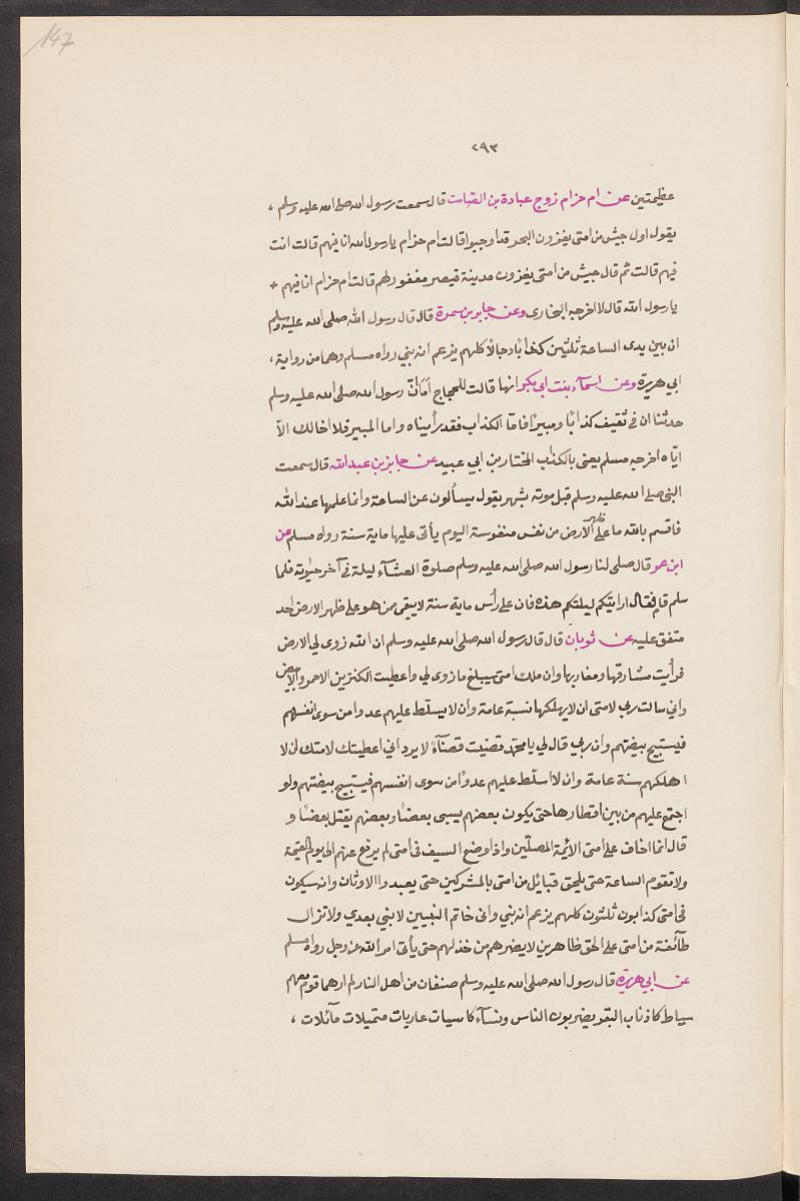 147
٢٩٣
عظيمتين عن ام حزام زوج عبادة بن الصامت قال سمعت رسول الله صلى الله عليه وسلم ،
يقول اول جيش من امتى يغزون البحر قد اوجبوا قالت ام حزام يا رسول الله انا فيهم قالت انت
فيهم قالت ثم قال جيش من امتى يغزون مدينة قيصر مغفور لهم قالت ام حزام انا فيهم *
يا رسول الله قال لا اخرجه البخارى وعن جابر بن سمرة قال قال رسول الله صلى الله عليه وسلم
ان بين يدى الساعة ثلثين كذابًا دجالًا كلهم يزعم انه نبي رواه مسلم وهما من رواية ،
ابي هريرة وعن اسمآء بنت ابى بكر انها قالت للحجاج اما ان رسول الله صلى الله عليه وسلم
حدثنا ان في ثقيف كذابًا ومبيرًا فامّا الكذاب فقد رأيناه واما المبير فلا اخالك الّا
ايّاه اخرجه مسلم يعنى بالكذاب المختار بن ابي عبيد عن جابر بن عبد الله قال سمعت
النبى صلى الله عليه وسلم قبل موته بشهر يقول يسألون عن الساعة وانما علمها عند الله
فاقسم بالله ما على ظهر الارض من نفس منفوسة اليوم يأتى عليها ماية سنة رواه مسلم عن
ابن عمر قال صلى لنا رسول الله صلى الله عليه وسلم صلوة العشآء ليلة في آخر حيوته فلما
سلم قام فقال ارايتكم ليلتكم هذه فان على رأس ماية سنة لا يبقى ممن هو على ظهر الارض احد
متفق عليه عن ثوبان قال قال رسول الله صلى الله عليه وسلم ان الله زوى لي الارض
فرأيت مشارقها ومغاربها وان ملك امتى سيبلغ ما زوى لي واعطيت الكنزين الاحمر والابيض
واني سالت ربي لامتى ان لا يهلكها بسنة عامة وان لا يسلّط عليهم عدوا من سوى انفسهم
فيستبيح بيضتهم وان ربي قال لي يا محمّد قضيت قضآءً لا يرد اني اعطيتك لامتك ان لا
اهلكهم بسنة عامة وان لا اسلّط عليهم عدوًا من سوى انفسهم فيستبيح بيضتهم ولو
اجتمع عليهم من بين اقطارها حتى يكون بعضهم يسبى بعضًا وبعضهم يقتل بعضًا و
قال انما اخاف على امتى الائمة المضلّين واذا وضع السيف فى امتى لم يرفع عنهم الى يوم القيمة
ولا تقوم الساعة حتى يلحق قبايل من امتى بالمشركين حتى يعبدوا الاوثان وانه سيكون
فى امتى كذابون ثلثون كلهم يزعم انه نبي وانى خاتم النبيين لا نبي بعدي ولا تزال
طآئفة من امتى على الحق ظاهرين لا يضرهم من خذلهم حتى يأتى امر الله عز وجل رواه مسلم
عن ابي هريرة قال رسول الله صلى الله عليه وسلم صنفان من اهل النار لم ارهما قوم معهم
سياط كاذناب البقر يضربون الناس ونسآء كاسيات عاريات متميلات مآئلات ،